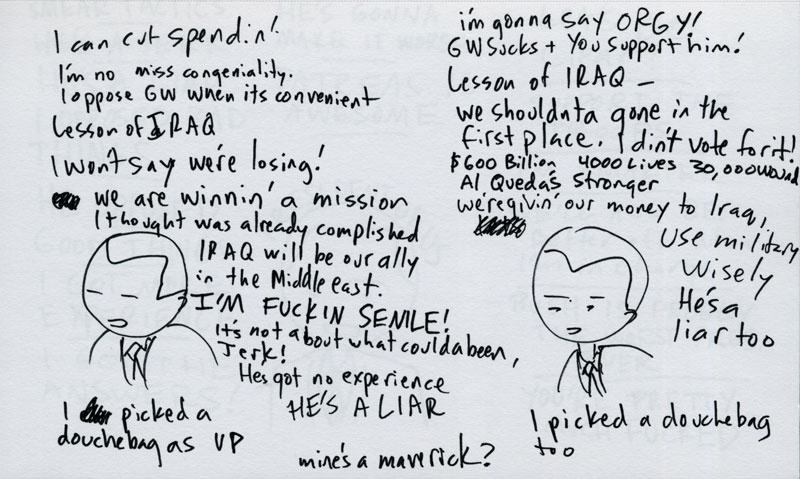 I can cut spendin'!
I'm no miss congeniality.
I oppose GW when its convenient
Lesson of IRAQ
I won't say we're losing!
we are winnin' a mission
I thought was already complished
IRAQ will be our ally
in the Middle east.
I'M FUCKIN SENILE!
It's not about what coulda been,
Jerk!
Hes got no experience
HE'S A LIAR
I picked a
douchebag as VP
mine's a maverick?
i'm gonna say ORGY!
GW Sucks + You support him!
Lesson of IRAQ —
we shouldnta gone in the
first place. I din't vote for it!
$600 Billion 4000 Lives 30,000 wound
Al Queda's Stronger
we're givin' our money to Iraq,
Use military
Wisely
He's a
liar too
I picked a douchebag
too